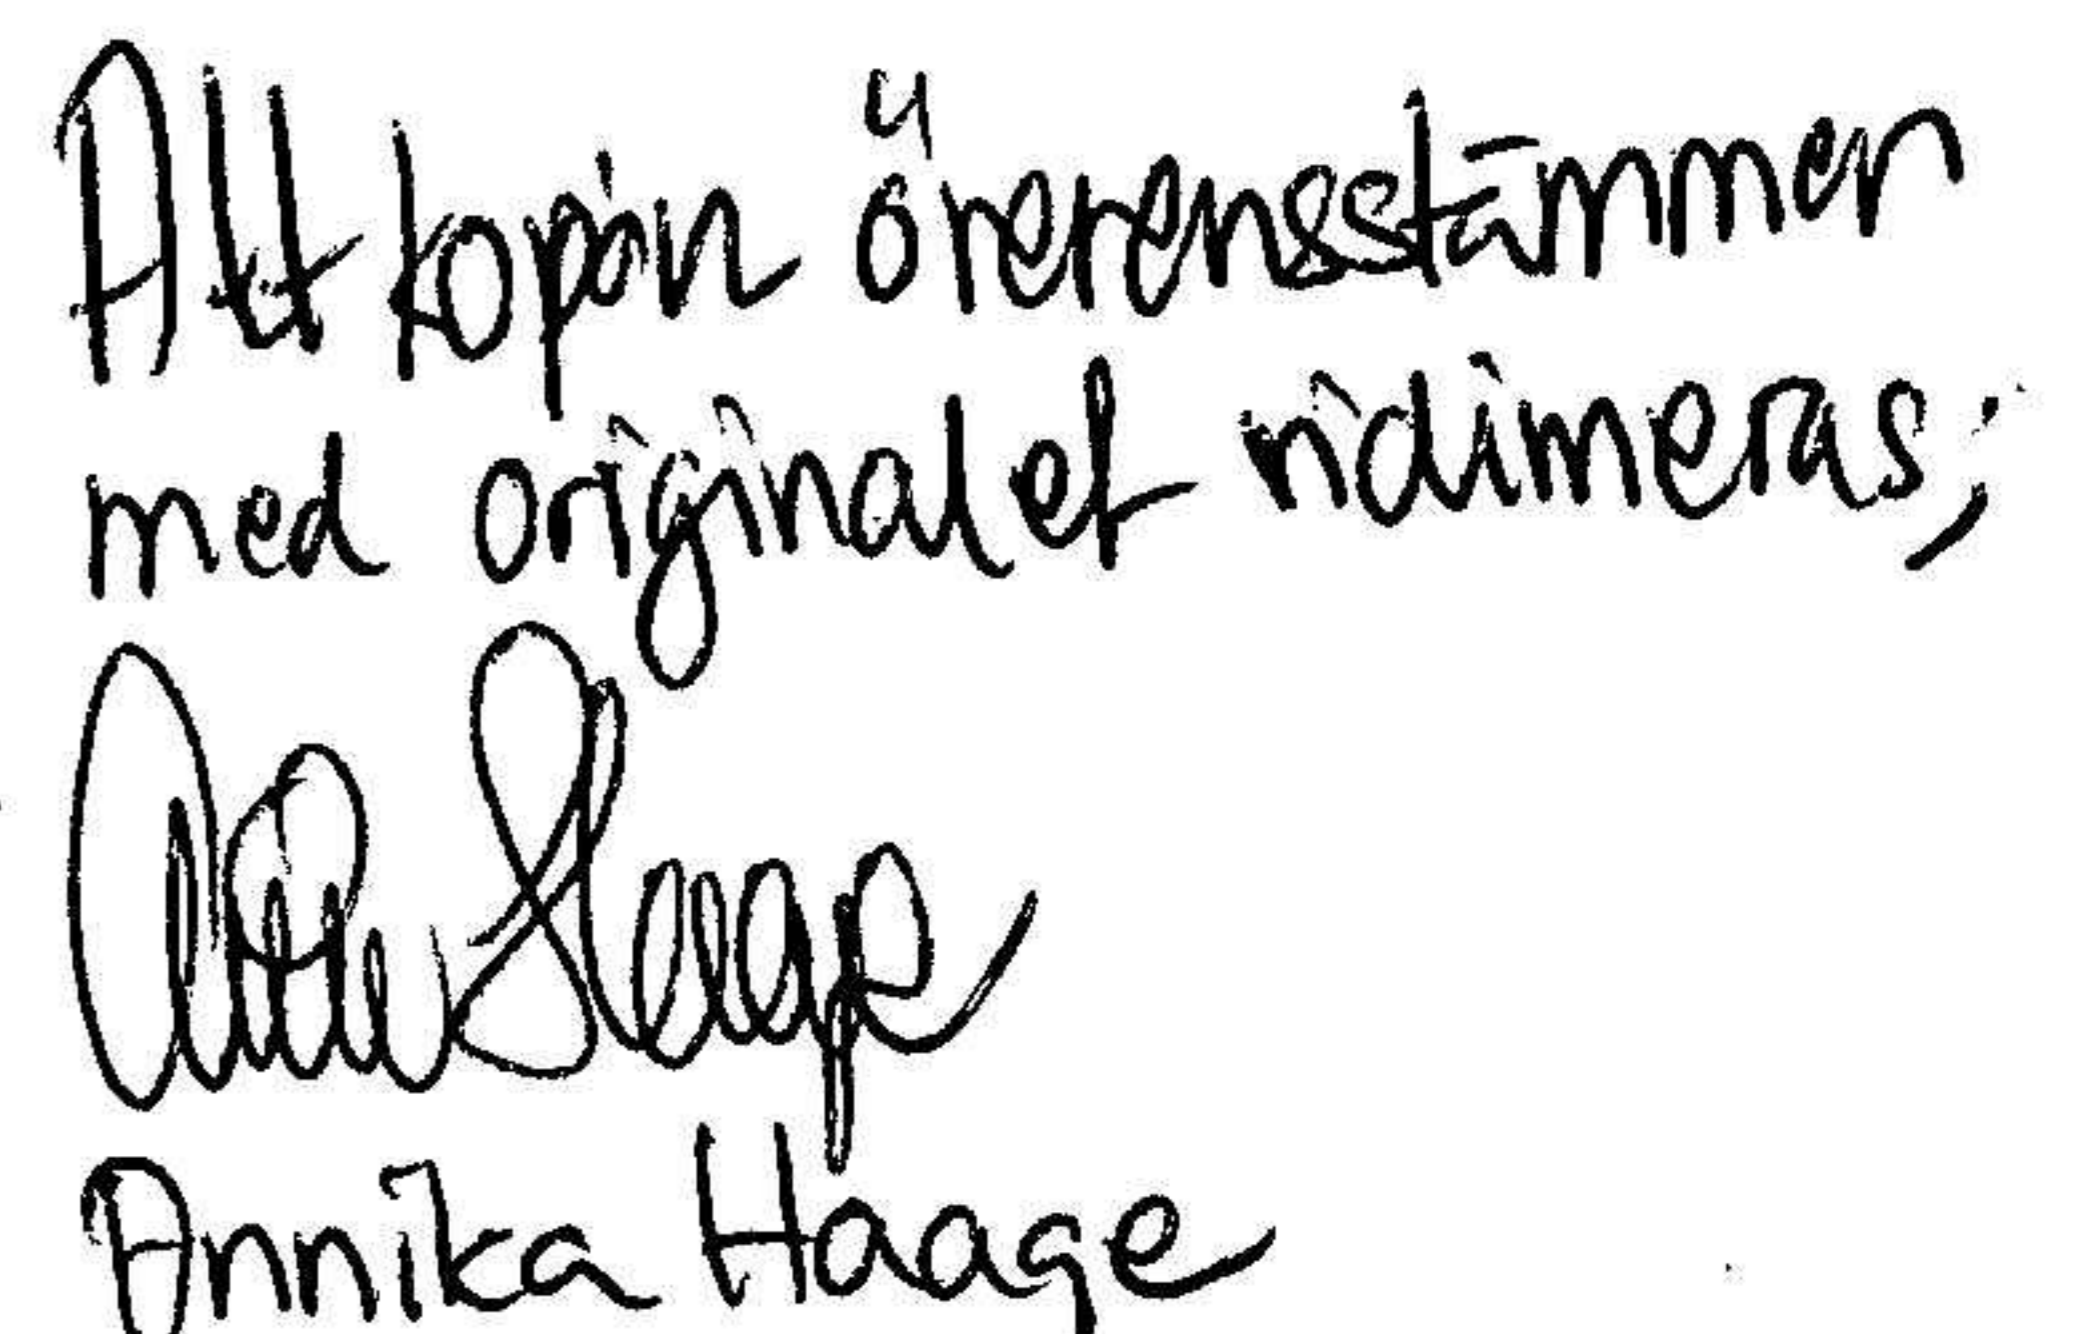 Att kopian överensstämmer
med originalet vidimeras;
Annika Haage
Annika Haage